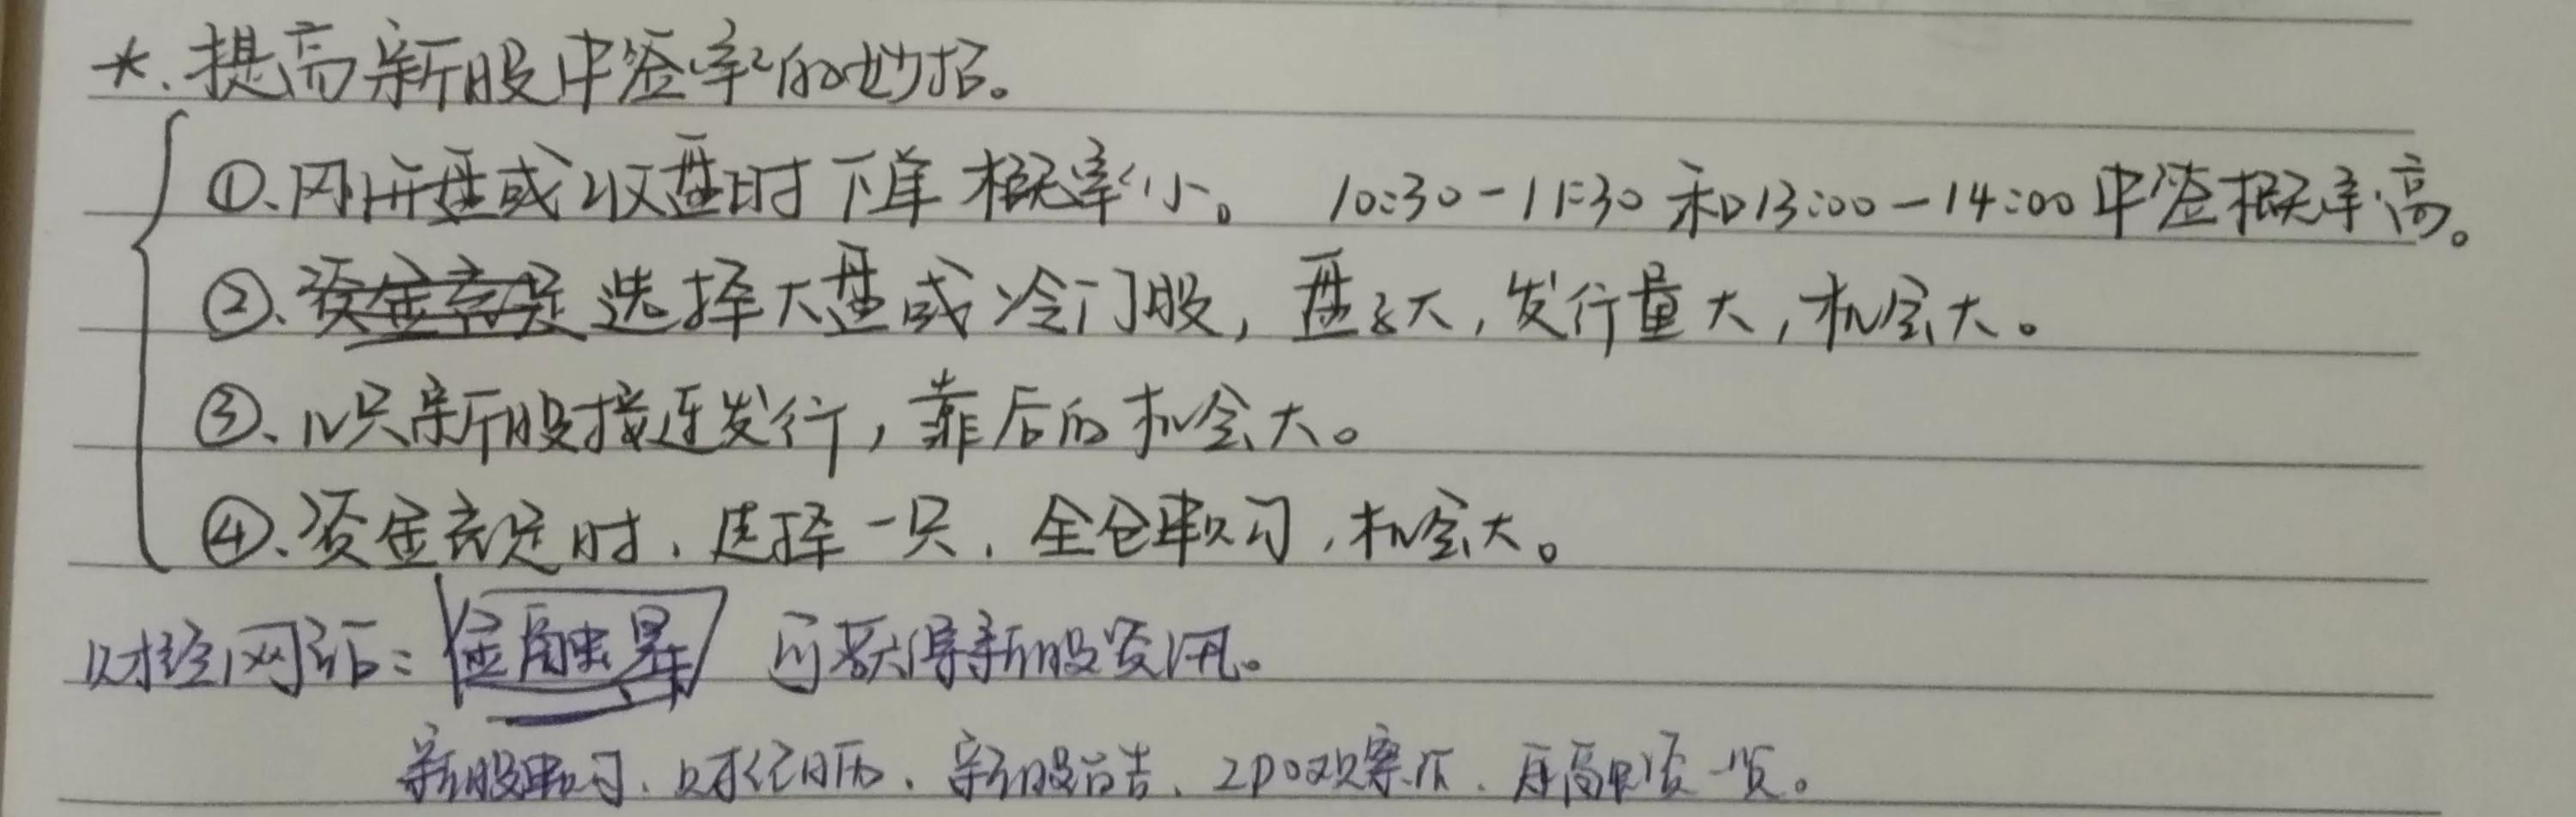 *. 提高新股中签率的妙招。
①、刚开盘或收盘时下单概率小。 10:30-11:30和13:00-14:00中签概率高。
②、资金充足选择大盘或冷门股，盘子大，发行量大，机会大。
③、几只新股接连发行，靠后的机会大。
④、资金充足时，选择一只，全仓申购，机会大。
财经网站：金融界 可获得新股资讯。
新股申购、财经日历、新股公告、IPO观察